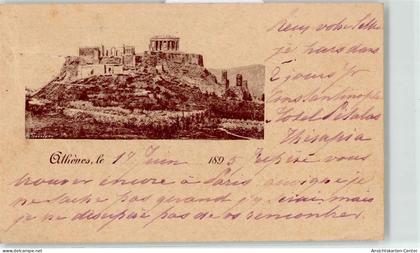 Reçu votre lettre
je pars dans
2 jours pr
Constantinople
Hotel Petalas
Thérapia
Athènes, le 17 Juin 1895 Espère vous
trouver encore à Paris, quoique je
ne sache pas quand j'y irai, mais
je ne désespère pas de vs rencontrer.
Ansichtskarten-Center